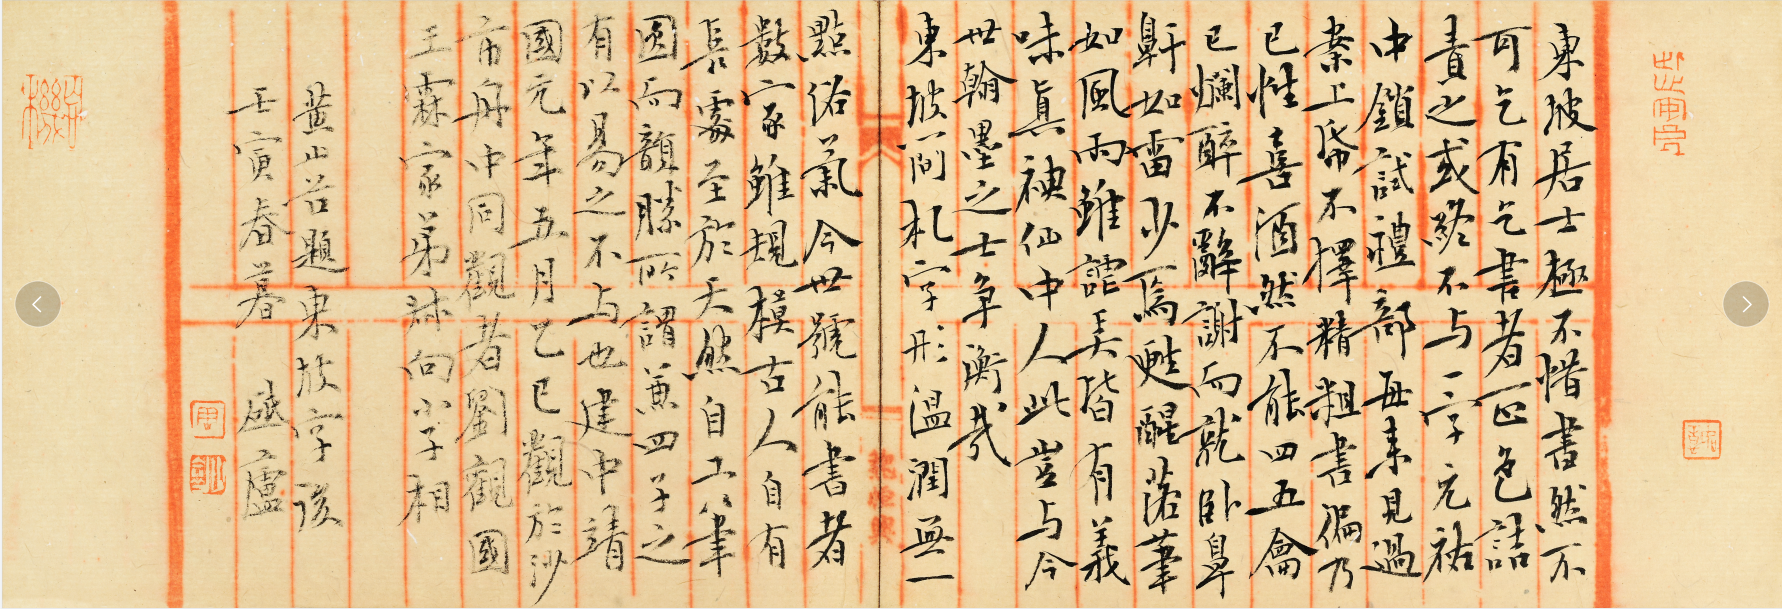 東坡居士極不惜書然不
可乞有乞書者正色詰
責之或終不与一字元祐
中鎖試禮部每来見過
案上紙不擇精粗書徧乃
已性喜酒然不能四五龠
已爛醉不辭謝而就卧鼻
鼾如雷少焉甦醒落筆
如風雨雖謔美皆有義
味真神仙中人此豈与今
世翰墨之士争衡哉
東坡簡札字形溫潤無一
點俗氣今世號能書者
數家雖規模古人自有
長處至於天然自工筆
圓而韻勝所謂兼四子之
有以易之不与也建中靖
國元年五月乙巳觀於沙
市舟中同觀者劉觀國
王霖家弟叔向小子相
黃山谷題東坡字後
壬寅春暮 盛廬